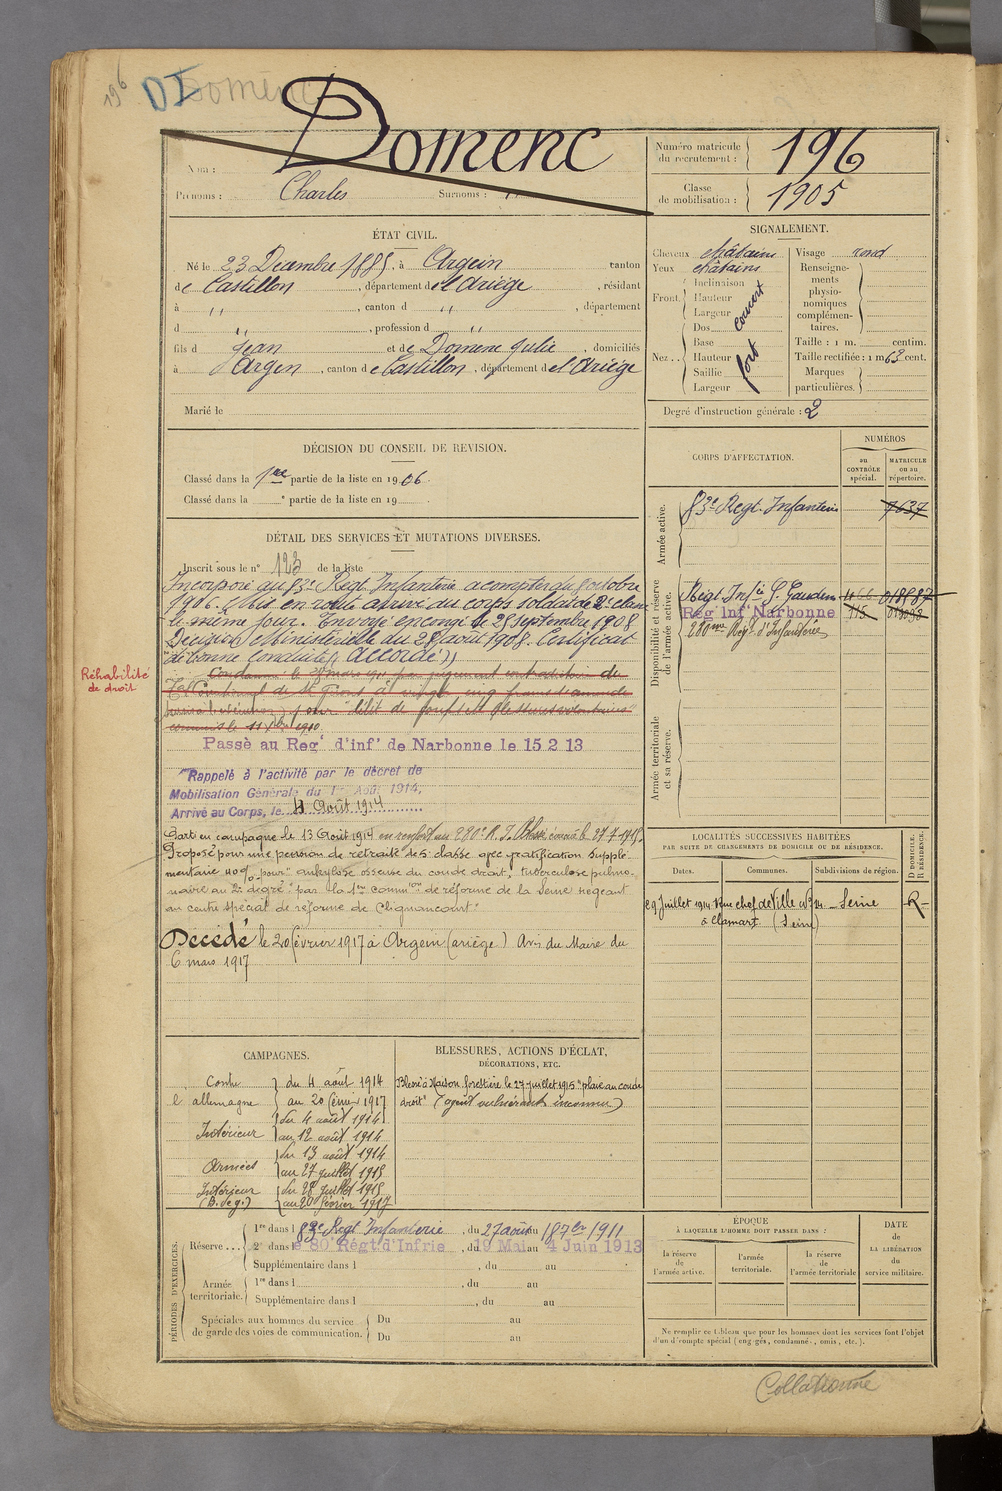 196 DI Domenc
Nom : Domenc
Prénoms : Charles Surnoms :
Numéro matricule du recrutement : 196
Classe de mobilisation : 1905
ÉTAT CIVIL.
Né le 23 Décembre 1885, à Argein canton
de Castillon, département de l'Ariège, résidant
à ,, , canton d ,, , département
d ,, , profession d ,,
fils d Jean et de Domenc Julie, domiciliés
à Argen, canton de Castillon, département de l'Ariège
Marié le
SIGNALEMENT.
Cheveux châtains
Yeux châtains
Front. Inclinaison
Hauteur
Largeur
couvert
Nez.. Dos
Base
Hauteur
Saillie
Largeur
fort
Visage rond
Renseigne-
ments
physio-
nomiques
complémen-
taires.
Taille : 1 m. centim.
Taille rectifiée : 1 m 63 cent.
Marques
particulières.
Degré d'instruction générale : 2
DÉCISION DU CONSEIL DE REVISION.
Classé dans la 1ère partie de la liste en 1906.
Classé dans la e partie de la liste en 19
DÉTAIL DES SERVICES ET MUTATIONS DIVERSES.
Inscrit sous le n° 123 de la liste
Incorporé au 83e Régt Infanterie à compter du 8 octobre
1906. Mis en route arrivé au corps soldat de 2e classe
le même jour. Envoyé en congé le 25 septembre 1908
Décision Ministérielle du 28 août 1908. Certificat
de bonne conduite (( Accordé ))
Réhabilité
de droit
Condamné le mars par jugement contradictoire du
Tribunal de St Girons à vingt cinq francs d'amende
pour "délit de coups et blessures volontaires"
commis le 11 1910.
Passé au Regt d'inft de Narbonne le 15 2 13
Rappelé à l'activité par le décret de
Mobilisation Générale du 1er Août 1914,
Arrivé au Corps, le 4 Août 1914
Parti en campagne le 13 Août 1914 en renfort au 280e R.I. Blessé évacué le 27-7-1915.
Proposé pour une pension de retraite de 5e classe avec gratification supplé-
mentaire 40% pour "ankylose osseuse du coude droit, tuberculose pulmo-
naire au 2e degré" par la 1ère commion de réforme de la Seine siégeant
au centre spécial de réforme de Clignancourt.
Décédé le 20 février 1917 à Argein (ariège) Avis du Maire du
6 mars 1917
CORPS D'AFFECTATION.
NUMÉROS
au CONTRÔLE spécial.
MATRICULE ou au répertoire.
Armée active.
83e Regt Infanterie 7637
Disponibilité et réserve de l'armée active.
Régt Infie S. Gaudens 018687
Reg Inf Narbonne 115
280ème Régt d'Infanterie
Armée territoriale et sa réserve.
LOCALITÉS SUCCESSIVES HABITÉES
PAR SUITE DE CHANGEMENTS DE DOMICILE OU DE RÉSIDENCE.
Dates. Communes. Subdivisions de région. D DOMICILE. R RÉSIDENCE.
29 Juillet 1914 Rue chef de Ville No 24 Seine R
à Clamart (Seine)
CAMPAGNES.
Contre du 4 août 1914
l'allemagne au 20 février 1917
Intérieur du 4 août 1914
au 12 août 1914
Armées du 13 août 1914
au 27 juillet 1915
Intérieur du 28 juillet 1915
(B. de g.) au 20 février 1917
BLESSURES, ACTIONS D'ÉCLAT,
DÉCORATIONS, ETC.
Blessé à Maison forestière le 27 juillet 1915 "plaie au coude
droit" (agent vulnérant inconnu)
PÉRIODES D'EXERCICES.
Réserve....
1re dans le 83e Regt Infanterie, du 27 août au 18 7bre 1911
2e dans le 80e Régt d'Infrie, du 19 Mai au 4 Juin 1913
Supplémentaire dans l , du au
Armée territoriale.
1re dans l , du au
Supplémentaire dans l , du au
Spéciales aux hommes du service
de garde des voies de communication.
Du au
Du au
ÉPOQUE
À LAQUELLE L'HOMME DOIT PASSER DANS :
la réserve de l'armée active.
l'armée territoriale.
la réserve de l'armée territoriale
DATE
de
LA LIBÉRATION
du
service militaire.
Ne remplir ce tableau que pour les hommes dont les services font l'objet
d'un décompte spécial (engagés, condamnés, omis, etc.).
Collationné